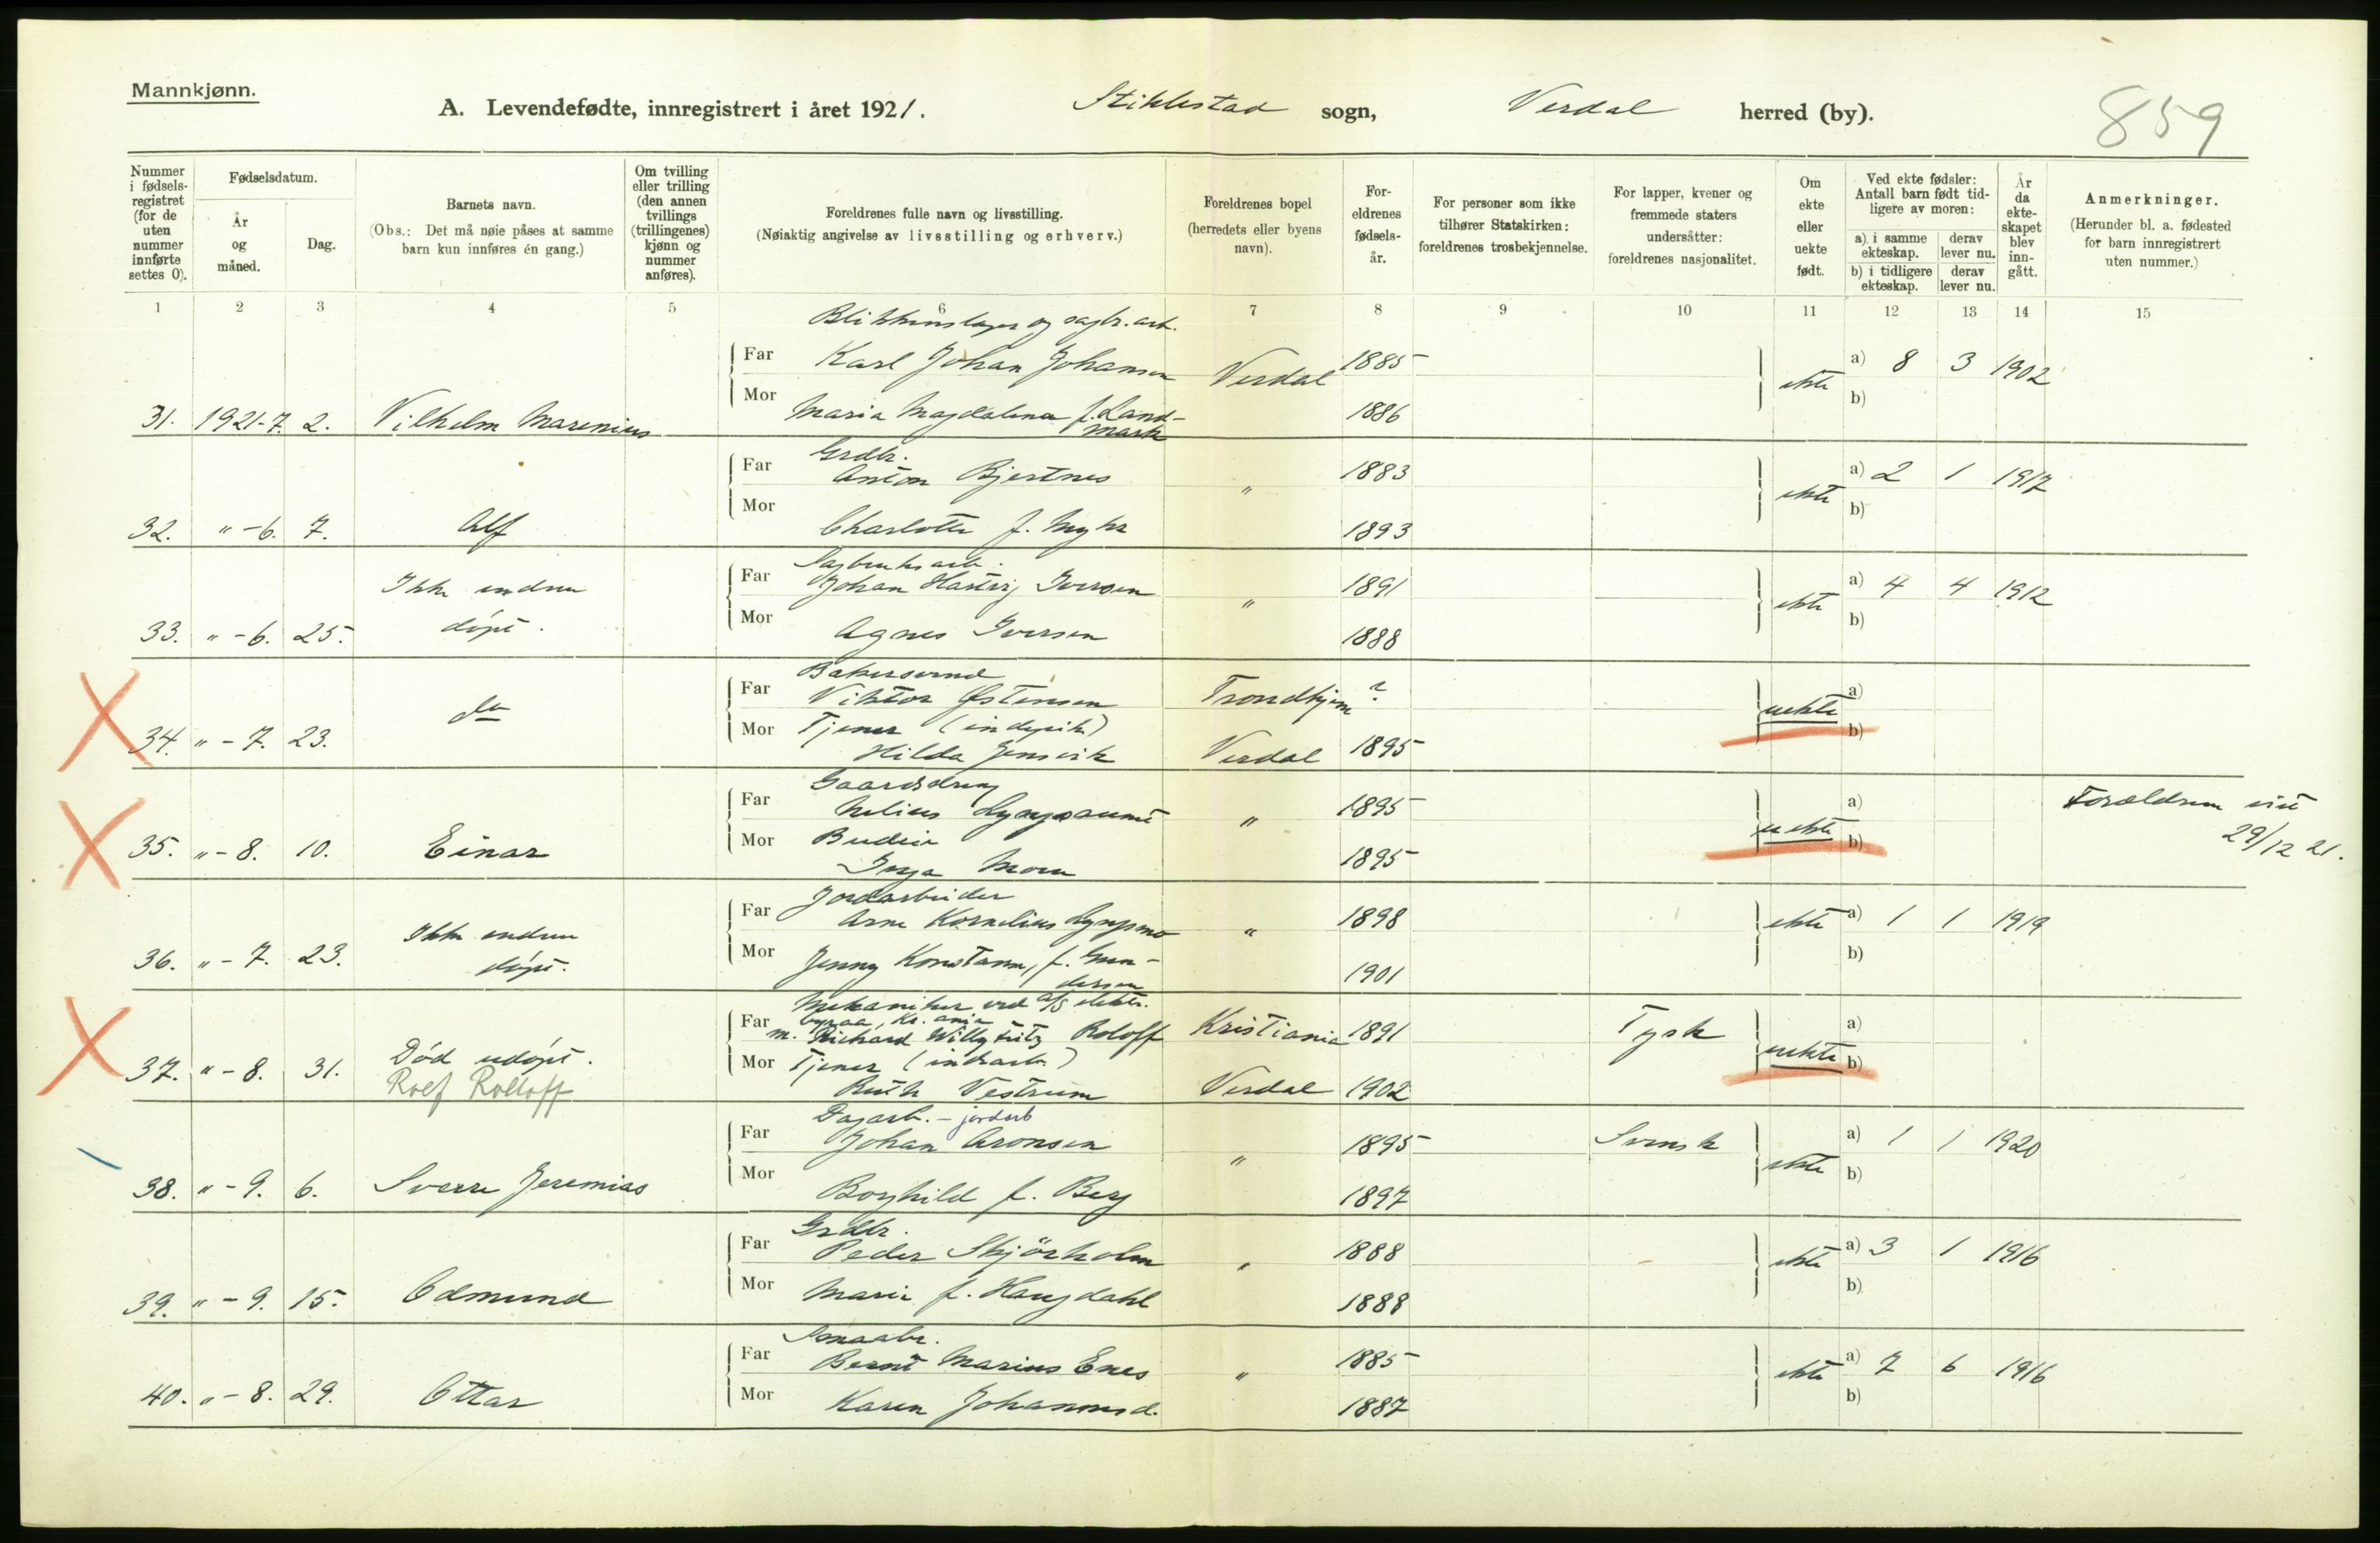 Mannkjønn.
A. Levendefødte, innregistrert i året 1921. Stiklestad sogn, Verdal herred (by).
859
Nummer i fødsels-registret (for de uten nummer innførte settes 0).
Fødselsdatum.
År og måned.
Dag.
Barnets navn.
(Obs.: Det må nøie påses at samme barn kun innføres én gang.)
Om tvilling eller trilling (den annen tvillings (trillingenes) kjønn og nummer anføres).
Foreldrenes fulle navn og livsstilling.
(Nøiaktig angivelse av livsstilling og erhverv.)
Foreldrenes bopel (herredets eller byens navn).
For-eldrenes fødsels-år.
For personer som ikke tilhører Statskirken: foreldrenes trosbekjennelse.
For lapper, kvener og fremmede staters undersåtter: foreldrenes nasjonalitet.
Om ekte eller uekte født.
Ved ekte fødsler: Antall barn født tid-ligere av moren:
a) i samme ekteskap.
derav lever nu.
b) i tidligere ekteskap.
derav lever nu.
År da ekte-skapet blev inn-gått.
Anmerkninger.
(Herunder bl. a. fødested for barn innregistrert uten nummer.)
1 2 3 4 5 6 7 8 9 10 11 12 13 14 15
Blikkenslager og sagbr. arb.
Far Karl Johan Johansen Verdal 1885 ekte a) 8 3 1902
31. 1921-7. 2. Vilhelm Marenius Mor Maria Magdalena f. Land-mark 1886 b)
Grdbr.
Far Anton Bjertnes " 1883 ekte a) 2 1 1917
32. " -6. 7. Alf Mor Charlotte f. Myhr 1893 b)
Sagbruksarb.
Far Johan Hartvig Iversen " 1891 ekte a) 4 4 1912
33. " -6. 25. Ikke endnu døpt. Mor Agnes Iversen 1888 b)
Bakersvend
Far Viktor Østensen Trondhjem ? uekte a)
34. " - 7. 23. do Mor Tjener
Hilda Jensvik Verdal 1895 b)
Gaardsdreng
Far " 1895 uekte a) Forældrene viet 29/12 21.
35. " - 8. 10. Einar Mor Budeie
Inga Moen 1895 b)
Jordarbeider
Far Arne Kornelius Lyngsmo " 1898 ekte a) 1 1 1919
36. " - 7. 23. Ikke endnu døpt. Mor Jenny Konstanse, f. Gun-dersen 1901 b)
Mekaniker ved a/s elektr. byraa, Kr.ania
Far m. Richard Willy Fritz Roloff Kristiania 1891 Tysk uekte a)
37. " - 8. 31. Død udøpt. Mor Tjener (indearb.)
Rolf Rolloff Ruth Vestrum Verdal 1902 b)
Dagarb. - jordarb
Far Johan Aronsen " 1895 Svensk ekte a) 1 1 1920
38. " - 9. 6. Sverre Jeremias Mor Borghild f. Berg 1897 b)
Grdbr.
Far Peder Skjörholm " 1888 ekte a) 3 1 1916
39. " - 9. 15. Edmund Mor Marie f. Haugdahl 1888 b)
Smaabr.
Far Bernt Marius Enes " 1885 ekte a) 7 6 1916
40. " - 8. 29. Ottar Mor Karen Johannesd. 1887 b)